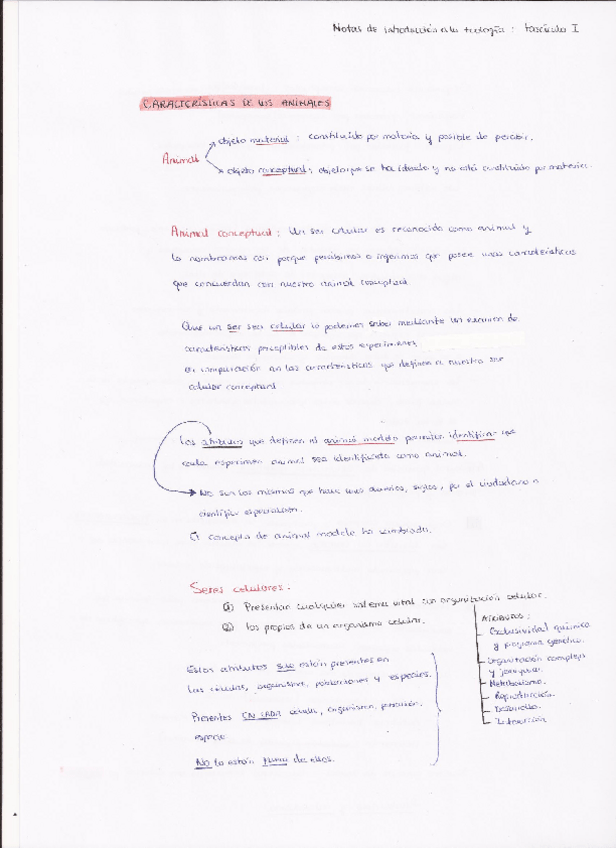 Notas de introducción a la zoología : Fascículo I
CARACTERÍSTICAS DE LOS ANIMALES
objeto material : constituido por materia y posible de percibir.
Animal
objeto conceptual : objeto que se ha ideado y no está constituido por materia.
Animal conceptual : Un ser celular es reconocido como animal y
lo nombramos con porque percibimos o inferimos que posee unas características
que concuerdan con nuestro animal conceptual
Que un ser sea celular lo podemos saber mediante un examen de
características perceptibles de estos especímenes
en comparación con las características que definen a nuestro ser
celular conceptual
Los atributos que definen al animal modelo permiten identificar que
cada espécimen animal sea identificado como animal.
No son los mismos que hace unos decenios, siglos, por el ciudadano o
científico especialista.
El concepto de animal modelo ha cambiado.
Seres celulares.
① Presentan cualquier sistema vital con organización celular.
② Los propios de un organismo celular.
Atributos :
Exclusividad química
y programa genético.
Organización compleja
y jerárquica.
Metabolismo.
Reproducción.
Desarrollo.
Interacción
Estos atributos sólo están presentes en
las células, organismos, poblaciones y especies.
Presentes EN CADA célula, organismo, población,
especie
No lo están fuera de ellos.